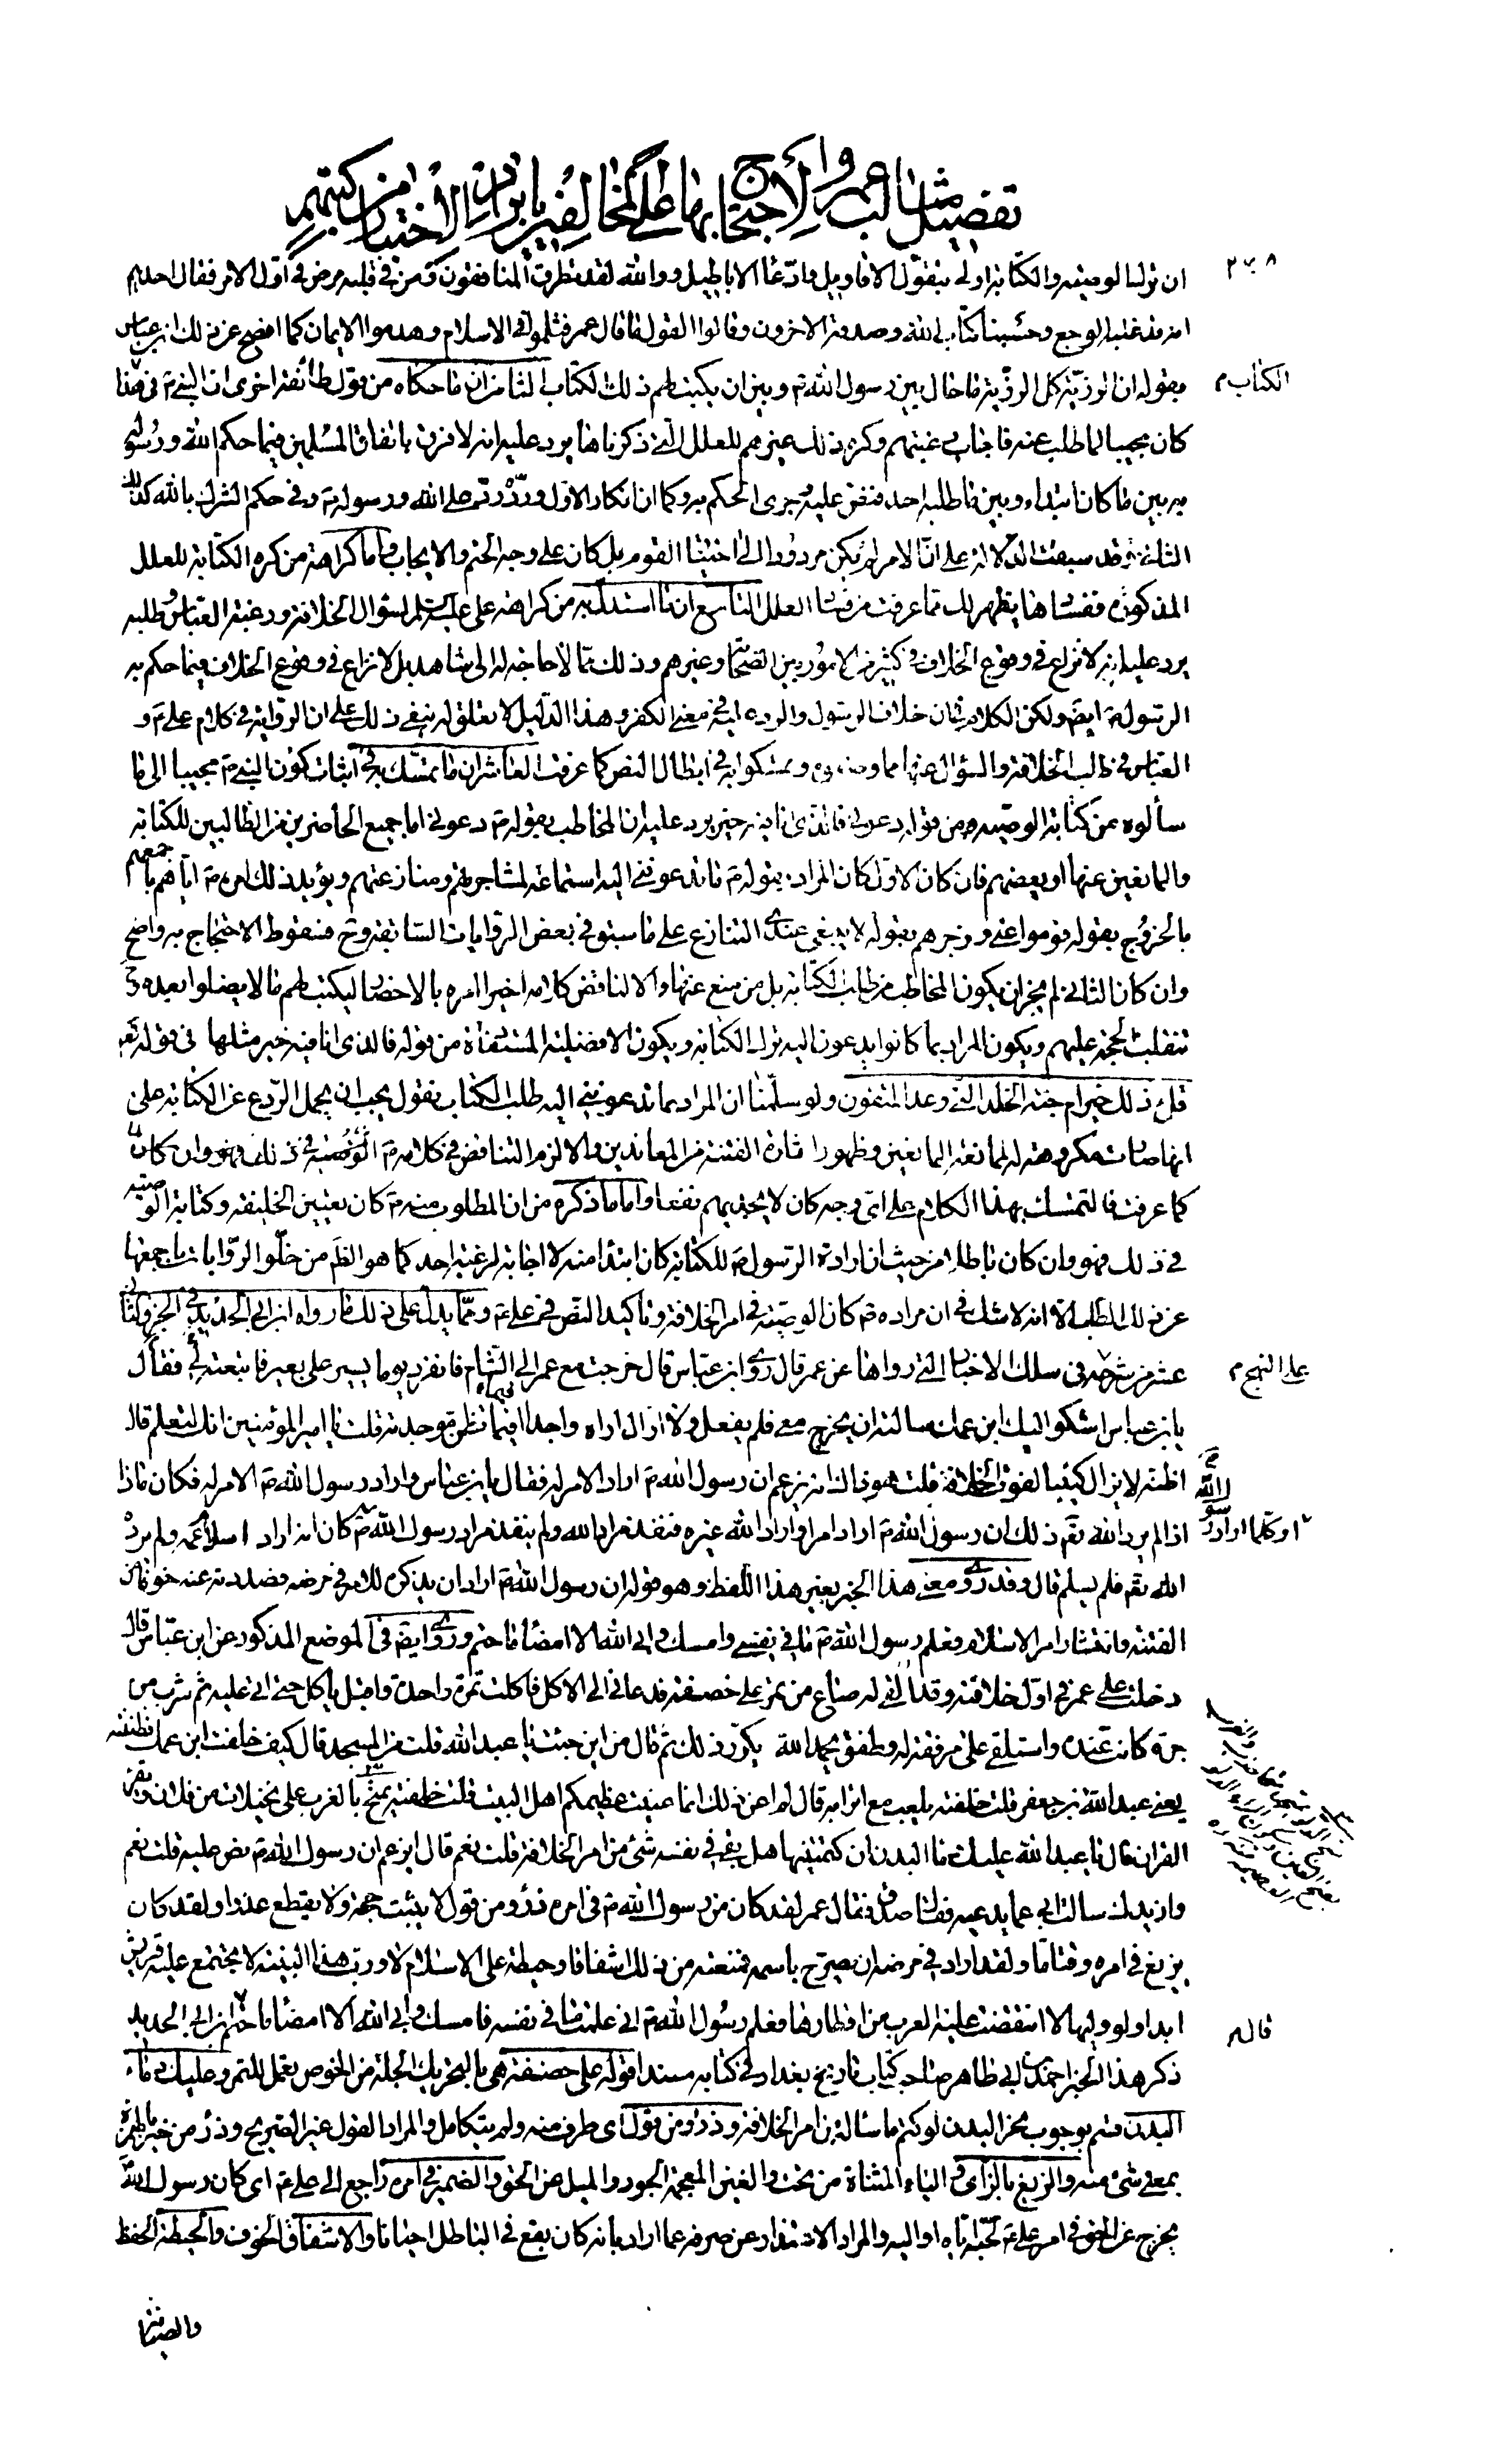 تفصيل مثالب عمر والاحتجاج بها على المخالفين بايراد الاخبار من كتبهم
٢٧٨
ان ترك الوصية والكتابة اولى بتقول الاقاويل وادعاء الاباطيل ووالله لقد تطرق المنافقون ومن في قلبه مرض في اول الامر فقال احدهم
انه قد غلبه الوجع وحسبنا كتاب الله وصدقه الاخرون وقالوا القول ما قال عمر فثلموا في الاسلام وهدموا الايمان كما افصح عن ذلك ابن عباس
بقوله ان الرزية كل الرزية ما حال بين رسول الله ص وبين ان يكتب لهم ذلك الكتاب الثامن ان ما حكاه من قول طائفة اخرى ان النبي ص في هذا
الكتاب م
كان مجيبا لما طلب عنه فاجاب رغبتهم وكره ذلك غيرهم للعلل التي ذكرناها يرد عليه انه لا فرق باتفاق المسلمين فيما حكم الله ورسوله
به بين ما كان ابتداء وبين ما طلبه احد فنص عليه وجرى الحكم به وكما ان انكار الاول ورده رد على الله ورسوله ص وفي حكم الشرك بالله كذلك
الثاني وقد سبقت الدلالة على ان الامر لم يكن مردودا الى اختيار القوم بل كان على وجه الحتم والايجاب واما كراهة من كره الكتابة للعلل
المذكورة ففسادها يظهر لك مما عرفت من فساد العلل التاسع ان ما استدل به من كراهة علي عليه السلم لسؤال الخلافة ورغبة العباس وطلبه
يرد عليه انه لا نزاع في وقوع الخلاف في كثير من الامور بين الصحابة وغيرهم وذلك مما لا حاجة له الى شاهد بل لا نزاع في وقوع الخلاف فيما حكم به
الرسول ص ايض ولكن الكلام في ان خلاف الرسول والرد عليه في معنى الكفر وهذا الدليل لا تعلق له بنفي ذلك على ان الرواية في كلام علي ع و
العباس في طلب الخلافة والسؤال عنها مما وضعوه وتمسكوا به في ابطال النص كما عرفت العاشر ان ما تمسك به في اثبات كون النبي ص مجيبا الى ما
سألوه عن كتابة الوصية من قوله دعوني فالذي انا فيه خير يرد عليه ان المخاطب بقوله ص دعوني اما جميع الحاضرين من الطالبين للكتابة
والمانعين عنها او بعضهم فان كان الاول كان المراد بقوله ص ما تدعونني اليه استماعه لمشاجرتهم ومنازعتهم ويؤيد ذلك امره ص اياهم باجمعهم
بالخروج بقوله قوموا عني وزجرهم بقوله لا ينبغي عندي التنازع على ما سبق في بعض الروايات السابقة وح فسقوط الاحتجاج به واضح
وان كان الثاني لم يجز ان يكون المخاطب من طلب الكتابة بل من منع عنها والا لناقض كلامه اخيرا امره بالاحضار ليكتب لهم ما لا يضلوا بعده وح
تنقلب الحجة عليهم ويكون المراد بما كانوا يدعون اليه ترك الكتابة ويكون الافضلية المستفادة من قوله فالذي انا فيه خير مثلها في قوله تعالى
قل اذلك خير ام جنة الخلد التي وعد المتقون ولو سلمنا ان المراد بما تدعونني اليه طلب الكتاب نقول يجب ان يحمل الردع عن الكتابة على
انها صارت مكروهة له لممانعة المانعين وظهور اثارة الفتنة من المعاندين والا لزم التناقض في كلامه ص
كما عرفت فالتمسك بهذا الكلام على اي وجه كان لا يجديهم نفعا واما ما ذكره من ان المطلوب منه ص كان تعيين الخليفة وكتابة الوصية
في ذلك فهو وان كان باطلا من حيث ان ارادة الرسول ص للكتابة كان ابتداء منه لا اجابة لرغبة احد كما هو الظ من خلو الروايات باجمعها
عن ذلك الطلب الا انه لا شك في ان مراده ص كان الوصية في امر الخلافة وتاكيد النص في علي ع ومما يدل على ذلك ما رواه ابن ابي الحديد في الجزء الثاني
عشر من شرحه في سلك الاخبار التي رواها عن عمر قال روى ابن عباس قال خرجت مع عمر الى الشام فانفرد يوما يسير على بعير فاتبعته فقال لي
على النهج م
يا بن عباس اشكو اليك ابن عمك سالته ان يخرج معي فلم يفعل ولا ازال اراه واجدا فيما تظن موجدته قلت يا امير المؤمنين انك لتعلم قال
اظنه لا يزال كئيبا لفوت الخلافة قلت هو ذاك انه يزعم ان رسول الله ص اراد الامر له فقال يا بن عباس واراد رسول الله ص الامر له فكان ماذا
اذا لم يرد الله تع ذلك ان رسول الله ص اراد امرا واراد الله غيره فنفذ مراد الله ولم ينفذ مراد رسول الله كان انه اراد اسلام عمه ولم يرده
اوكلما اراد رسول الله ص
الله تع فلم يسلم قال وقد روى معنى هذا الخبر بغير هذا اللفظ وهو قوله ان رسول الله ص اراد ان يذكره للامر في مرضه فصددته عنه خوفا من
الفتنة وانتشار امر الاسلام فعلم رسول الله ص ما في نفسي وامسك وابى الله الا امضاء ما حتم وروى ايض في الموضع المذكور عن ابن عباس قال
دخلت على عمر في اول خلافته وقد القي له صاع من تمر على خصفة فدعاني الى الاكل فاكلت تمرة واحدة واقبل ياكل حتى اتى عليه ثم شرب من
جرة كانت عنده واستلقى على مرفقة له وطفق يحمد الله يكرر ذلك ثم قال من اين جئت يا عبد الله قلت من المسجد قال كيف خلفت ابن عمك فظننته
يعني عبد الله بن جعفر قلت خلفته يلعب مع اترابه قال لم اعن ذلك انما عنيت عظيمكم اهل البيت قلت خلفته يمتح بالغرب على نخيلات من فلان ويقرء
القران قال يا عبد الله عليك دماء البدن ان كتمتنيها هل بقي في نفسه شئ من امر الخلافة قلت نعم قال ايزعم ان رسول الله ص نص عليه قلت نعم
وازيدك سالت ابي عما يدعيه فقال صدق فقال عمر لقد كان من رسول الله ص في امره ذرو من قول لا يثبت حجة ولا يقطع عذرا ولقد كان
يزيغ في امره وقتا ما ولقد اراد في مرضه ان يصرح باسمه فمنعته من ذلك اشفاقا وحيطة على الاسلام لا ورب هذه البنية لا يجتمع عليه قريش
ابدا ولو وليها لانتقضت عليه العرب من اقطارها فعلم رسول الله ص اني علمت ما في نفسه فامسك وابى الله الا امضاء ما حتم ابن ابي الحديد
قال م
ذكر هذا الخبر احمد بن ابي طاهر صاحب كتاب تاريخ بغداد في كتابه مسندا قوله على خصفة هي بالتحريك الجلة من الخوص يعمل للتمر وعليك دماء
البدن قسم بوجوب نحر البدن لو كتم ما سأله من امر الخلافة وذرو من قول اي طرف منه ولم يتكامل والمراد القول غير الصريح وذرء من خبر بالهمزة
بمعنى شئ منه والزيغ بالزاي والياء المثناة من تحت والغين المعجمة الجور والميل عن الحق والضمير في امره راجع الى علي ع اي كان رسول الله
يخرج عن الحق في امر علي ع لحبه اياه او اليه والمراد الاعتذار عن صرفه عما اراد بانه كان يقع في الباطل احيانا والاشفاق الخوف والحيطة الحفظ
والصيانة